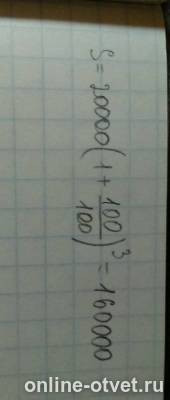 S = 20000(1 + 100/100)^3 = 160000
online-otvet.ru